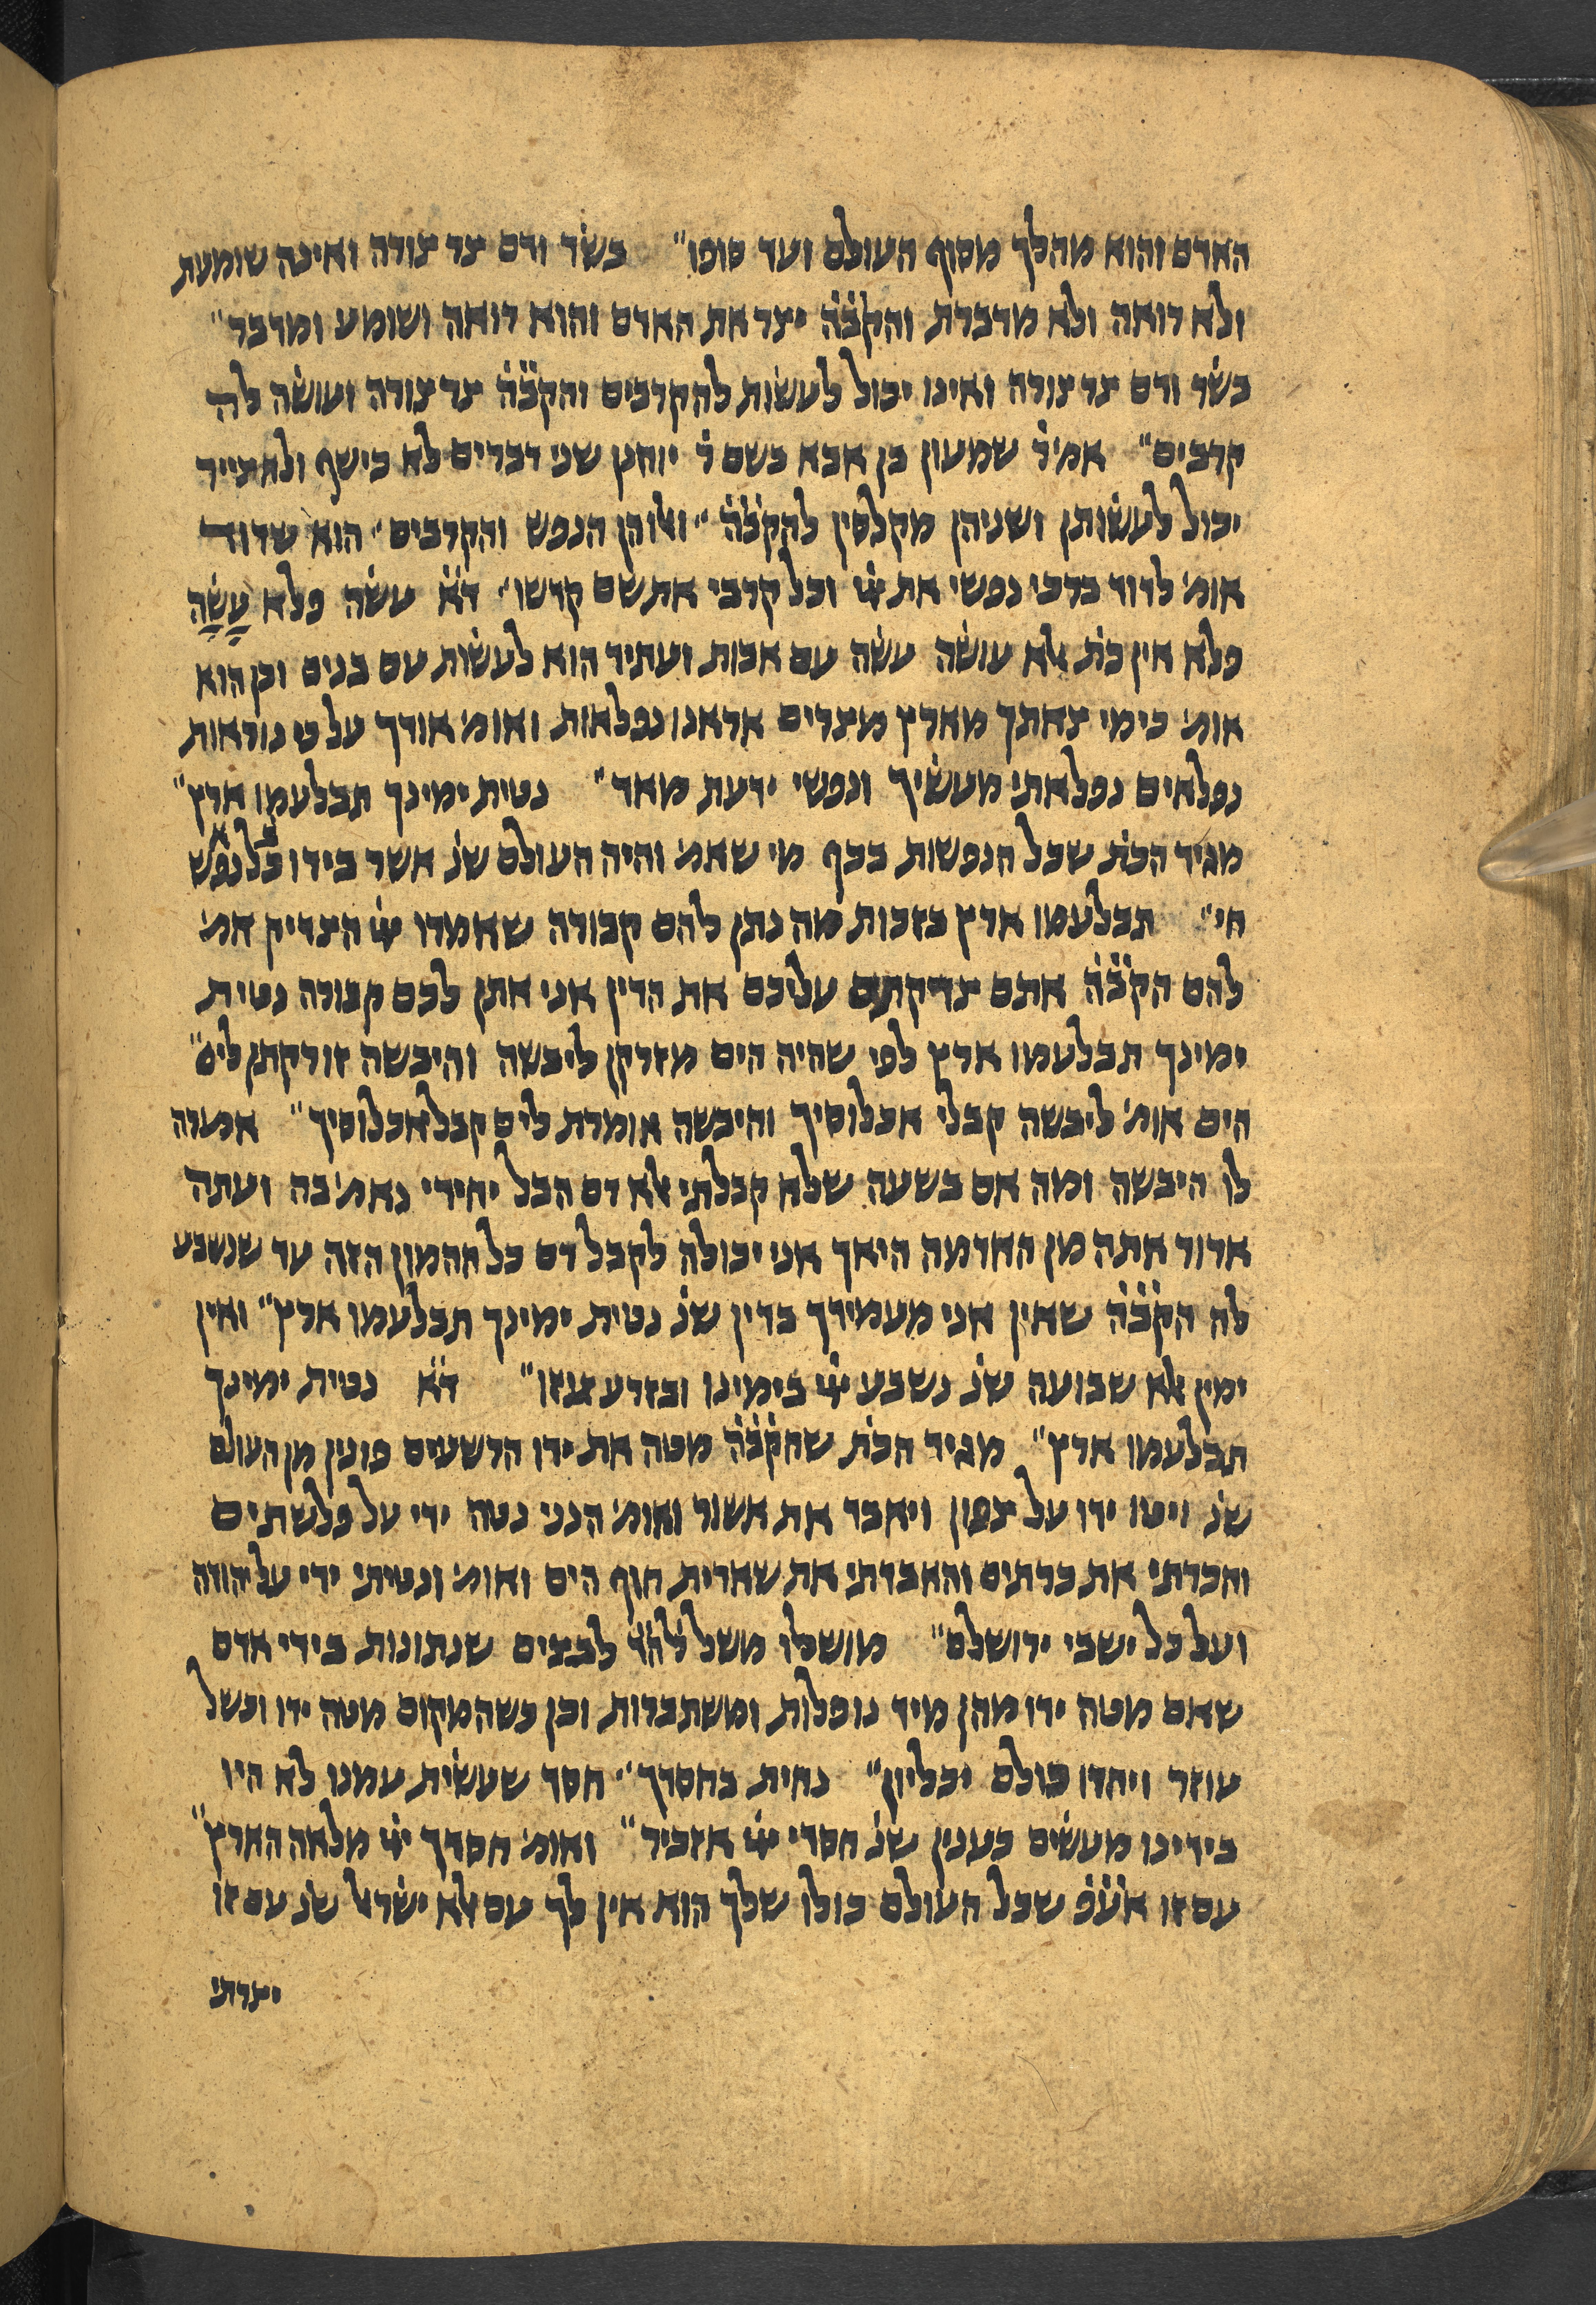 האדם והוא מהלך מסוף העולם ועד סופו״ בשר ודם צר צורה ואינה שומעת
ולא רואה ולא מדברת והקבה יצר את האדם והוא רואה ושומע ומדבר״
בשר ודם צר צורה ואינו יכול לעשות לה קרבים והקבה צר צורה ועושה לה
קרבים״ אמ׳ר שמעון בן אבא בשם ר׳ יוחנן שני דברים לא כישף ולא צייר
יכול לעשותן ושניהן מקלסין להקבה ״ואלו הן הנפש והקרבים״ הוא שדוד
אומ׳ לדוד ברכי נפשי את יי וכל קרבי את שם קדשו״ דא עשה פלא עֹשֵׂה
פלא אין כת אלא עושה עשה עם אבות ועתיד הוא לעשות עם בנים וכן הוא
אומ׳ כימי צאתך מארץ מצרים אראנו נפלאות ואומ׳ אודך על כי נוראות
נפלאים נפלאתי מעשיך ונפשי ידעת מאד״ נטית ימינך תבלעמו ארץ״
מגיד הכת שכל הנפשות בכף מי שאמ׳ והיה העולם שנ אשר בידו כל נפש
חי״ תבלעמו ארץ בזכות מה נתן להם קבורה שאמרו יי הצדיק אמ׳
להם הקבה אתם צדקתם עליכם את הדין אני אתן לכם קבורה נטית
ימינך תבלעמו ארץ לפי שהיה הים מזרקן ליבשה והיבשה זורקתן לים״
הים אומ׳ ליבשה קבלי אכלוסיך והיבשה אומרת לים קבל אכלוסיך״ אמרה
לו היבשה ומה אם בשעה שלא קבלתי אלא דם הבל יחידי נאמ׳ בה ועתה
ארור אתה מן האדמה היאך אני יכולה לקבל דם כל ההמון הזה עד שנשבע
לה הקבה שאין אני מעמידך בדין שנ נטית ימינך תבלעמו ארץ״ ואין
ימין אלא שבועה שנ נשבע יי בימינו ובזרוע עוזו״ דא נטית ימינך
תבלעמו ארץ״ מגיד הכת שהקבה מטה את ידו הרשעים פונין מן העולם
שנ ויטו ידו על צפון ויאבד את אשור ואומ׳ הנני נטה ידי על פלשתים
והכרתי את כרתים והאבדתי את שארית חוף הים ואומ׳ ונטיתי ידי על יהודה
ועל כל ישבי ירושלם״ מושלו משל להד לבצים שנתונות בידי אדם
שאם מטה ידו מהן מיד נופלות ומשתברות וכן כשהמקום מטה ידו וכשל
עוזר ויחדו כולם יכליון״ נחית בחסדך״ חסד שעשית עמנו לא היו
בידינו מעשים כענין שנ חסדי יי אזכיר״ ואומ׳ חסדך יי מלאה הארץ״
עם זו אעפ שכל העולם כולו שלך הוא אין לך עם אלא ישראל שנ עם זו
יצרתי